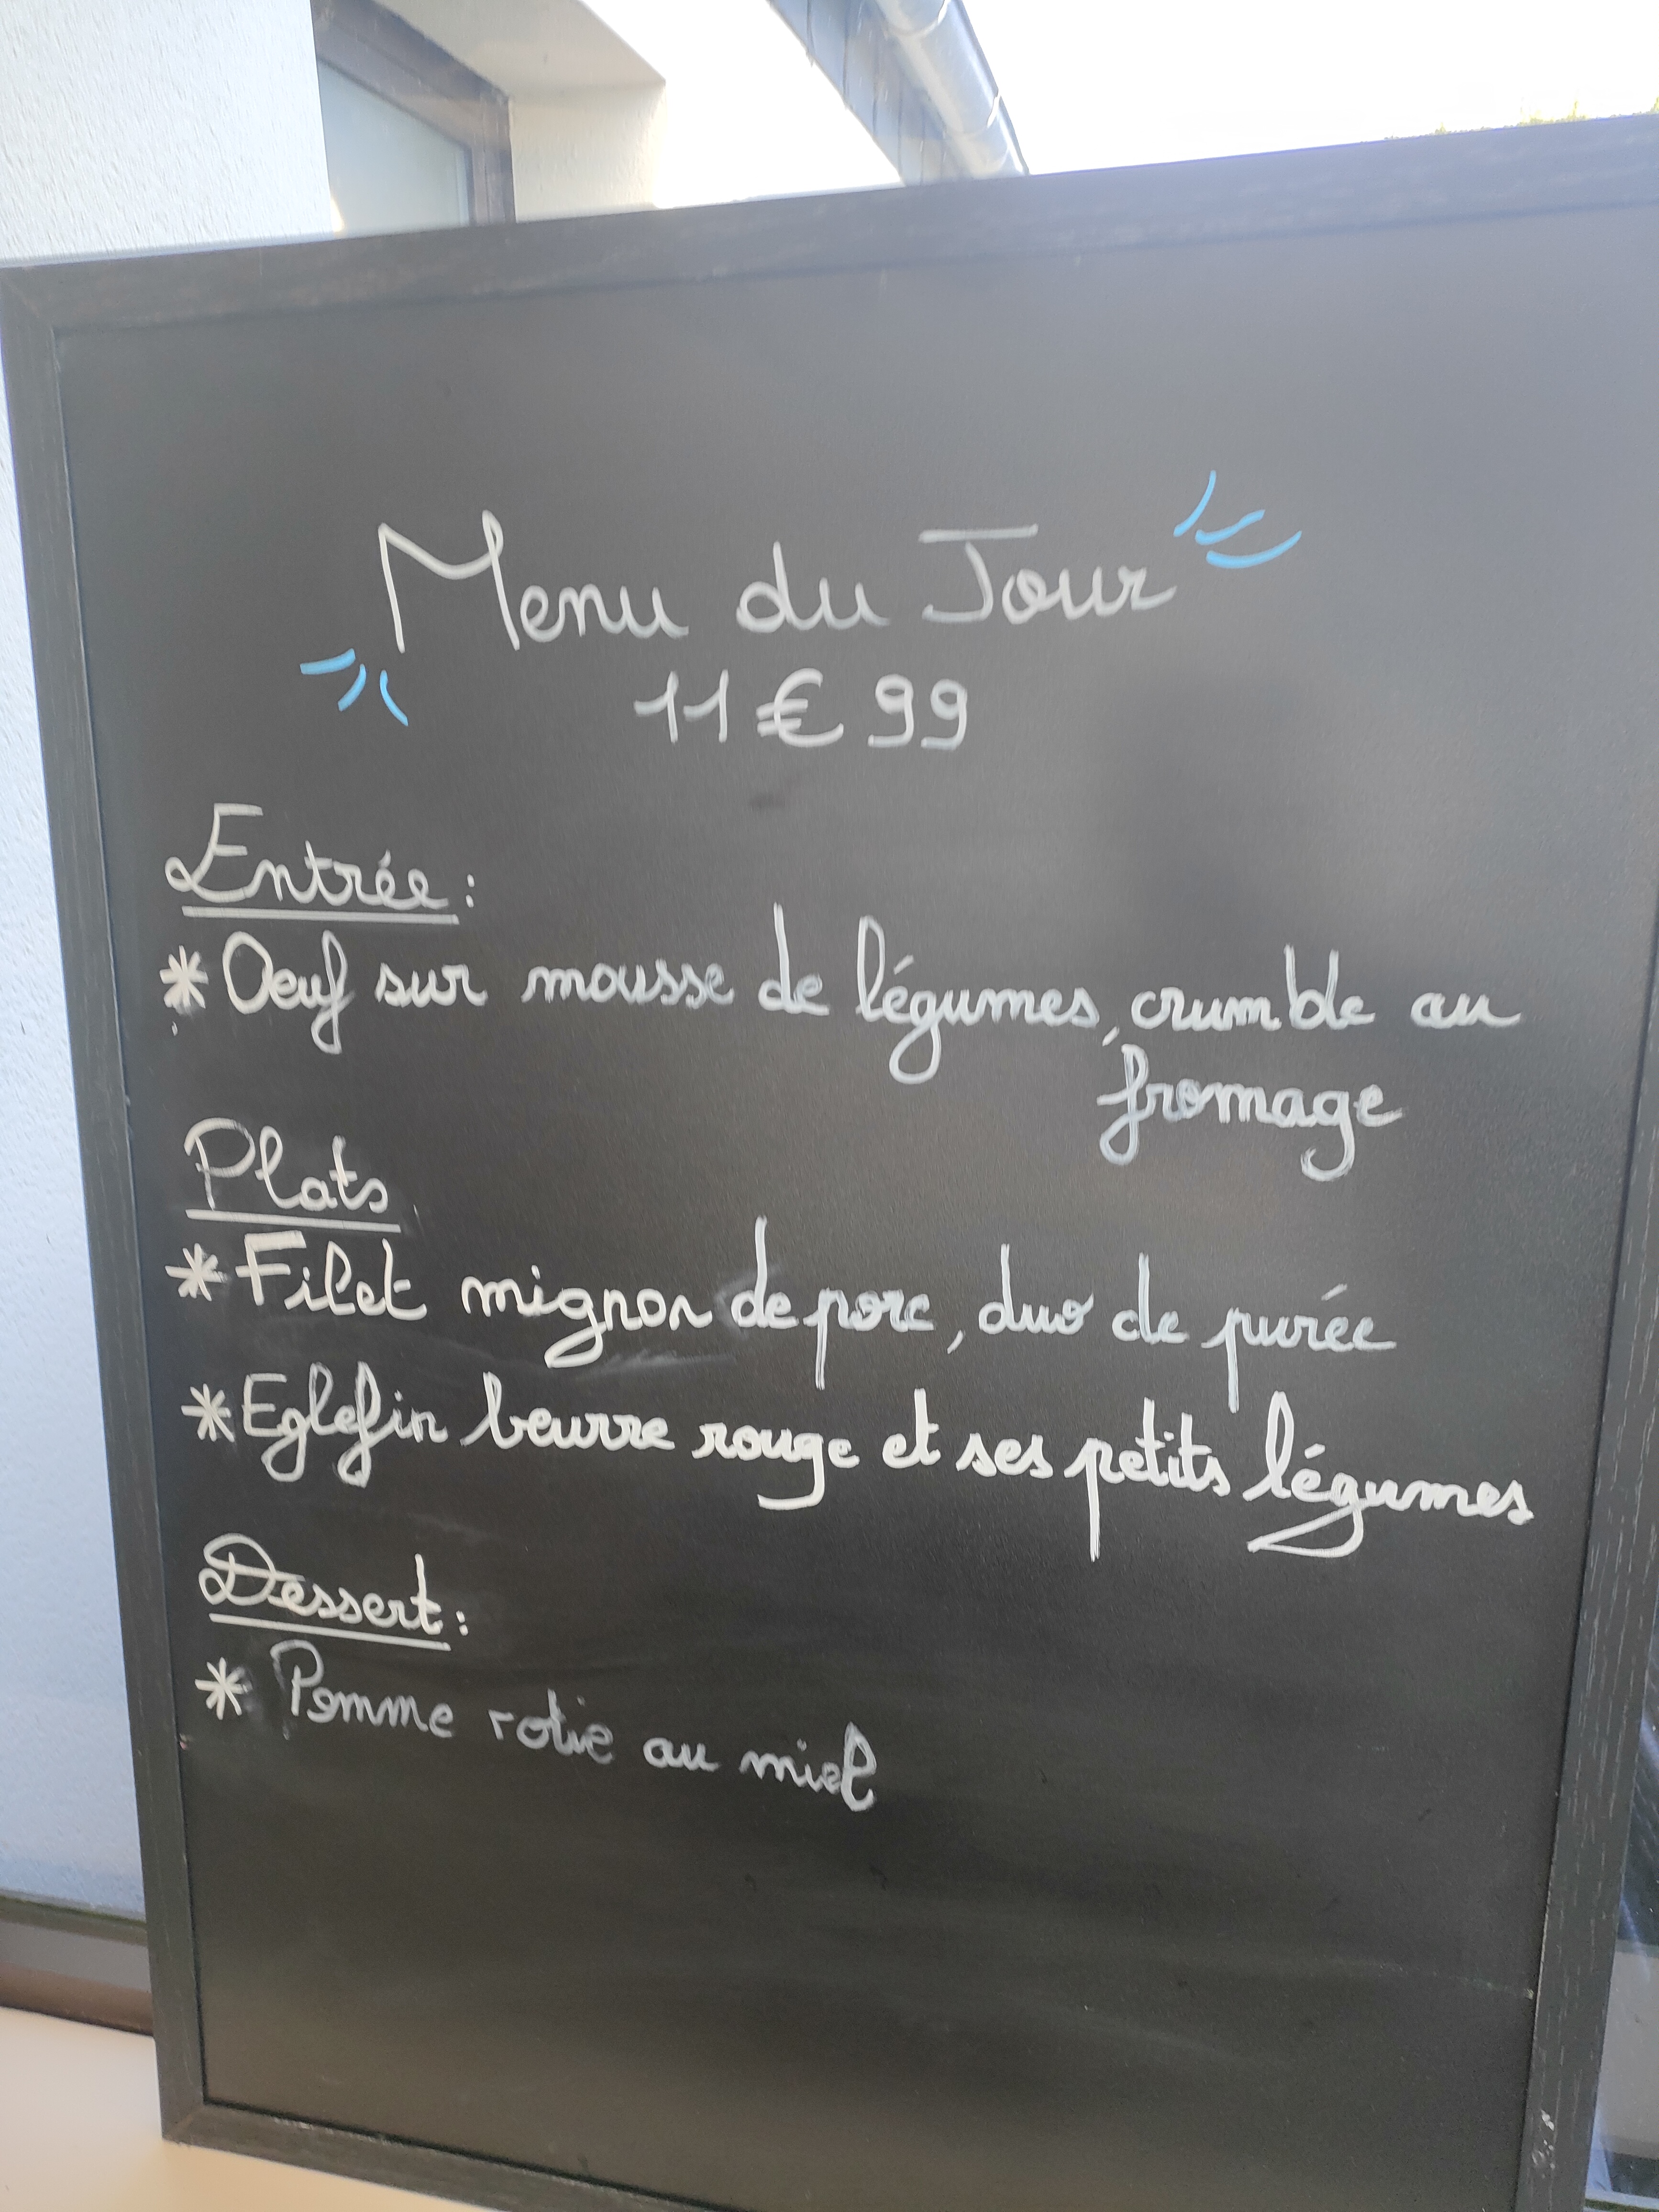 Menu du Jour
11€99
Entrée :
* Oeuf sur mousse de légumes, crumble au
fromage
Plats
* Filet mignon de porc, duo de purée
* Eglefin beurre rouge et ses petits légumes
Dessert :
* Pomme rotie au miel